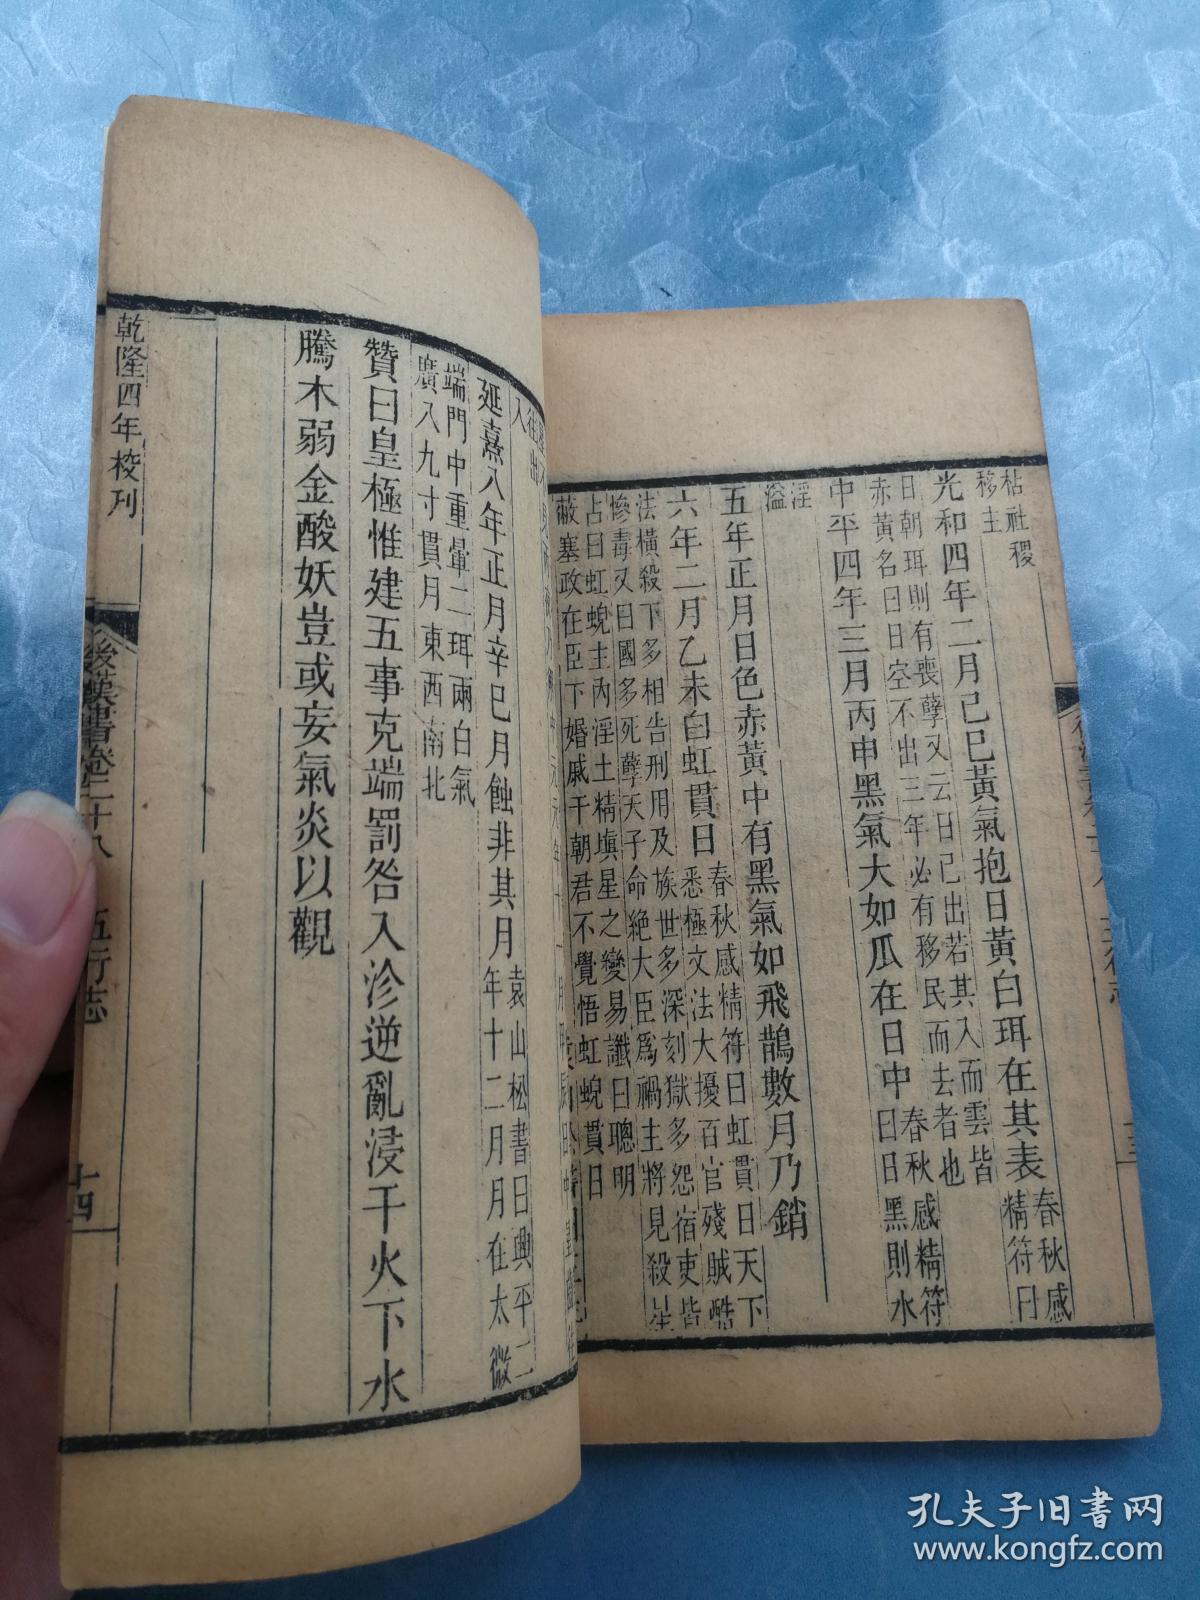 枯社稷
移主
光和四年二月己巳黃氣抱日黃白珥在其表
春秋感
精符曰
日朝珥則有喪孽又云日已出若其入而雲皆
赤黃名曰日空不出三年必有移民而去者也
中平四年三月丙申黑氣大如瓜在日中
春秋感精符
曰日黑則水
淫
溢
五年正月日色赤黃中有黑氣如飛鵲數月乃銷
六年二月乙未白虹貫日
春秋感精符曰虹貫日天下
悉極文法大擾百官殘賊酷
法橫殺下多相告刑用及族世多深刻獄多怨宿吏皆
慘毒又曰國多死孽天子命絶大臣爲禍主將見殺星
占曰虹蜺主內淫土精塡星之變易讖曰聰明
蔽塞政在臣下婚戚干朝君不覺悟虹蜺貫日
往出
入
延熹八年正月辛巳月蝕非其月
袁山松書曰興平二
年十二月月在太微
端門中重暈二珥兩白氣
廣八九寸貫月東西南北
贊曰皇極惟建五事克端罰咎入沴逆亂浸干火下水
騰木弱金酸妖豈或妄氣炎以觀
乾隆四年校刊
後漢書卷二十八
五行志
十四
孔夫子旧书网
www.kongfz.com